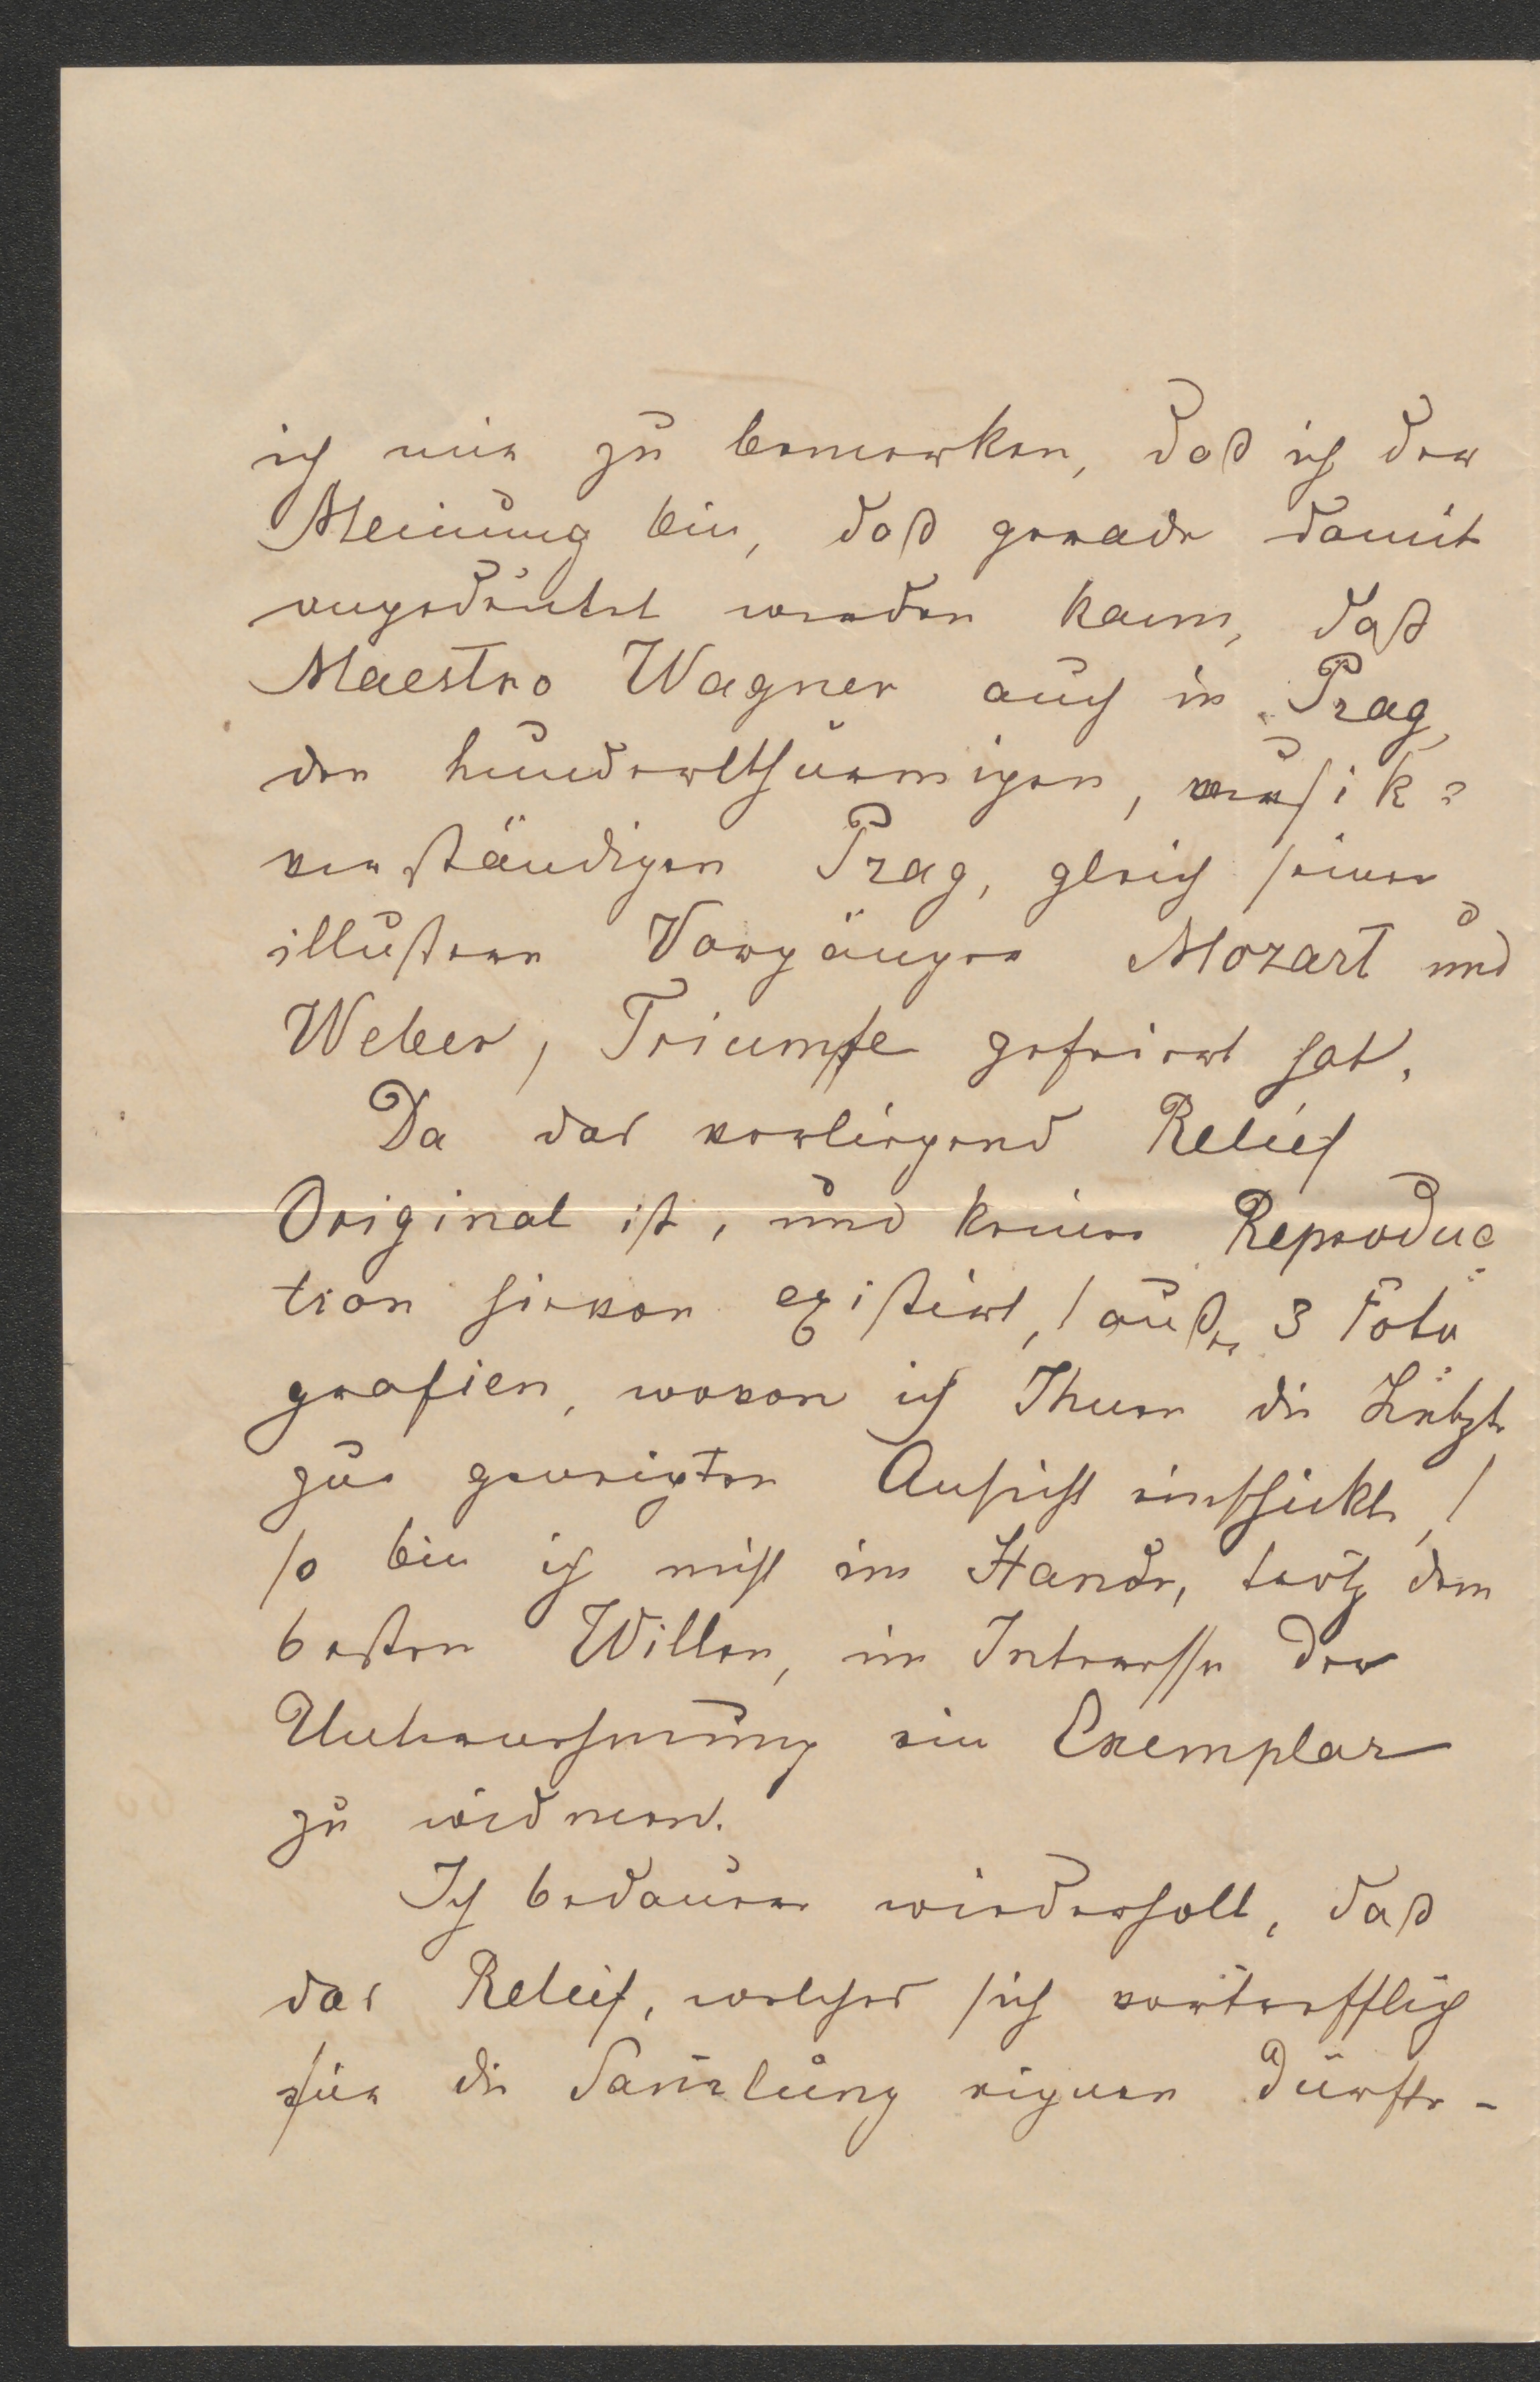 ich mir zu bemerken, daß ich der
Meinung bin, daß gerade damit
angedeutet werden kann, daß
Maestro Wagner auch in Prag,
den hundertthürmigen, musik-
verständigen Prag, gleich seinen
illustren Vorgänger Mozart und
Weber, Triumfe gefeiert hat.
Da das vorliegend Relief
Original ist, und keine Reproduc
tion hievon existiert, / außer 3 Foto
grafien, wovon ich Ihnen die Letzte
zur geneigten Ansicht einschickte, /
so bin ich nicht im Stande, trotz dem
besten Willen, im Interesse der
Unternehmung ein Exemplar
zu widmen.
Ich bedauere wiederholt, daß
das Relief, welches sich vortrefflich
für die Sam̄lung eignen dürfte -